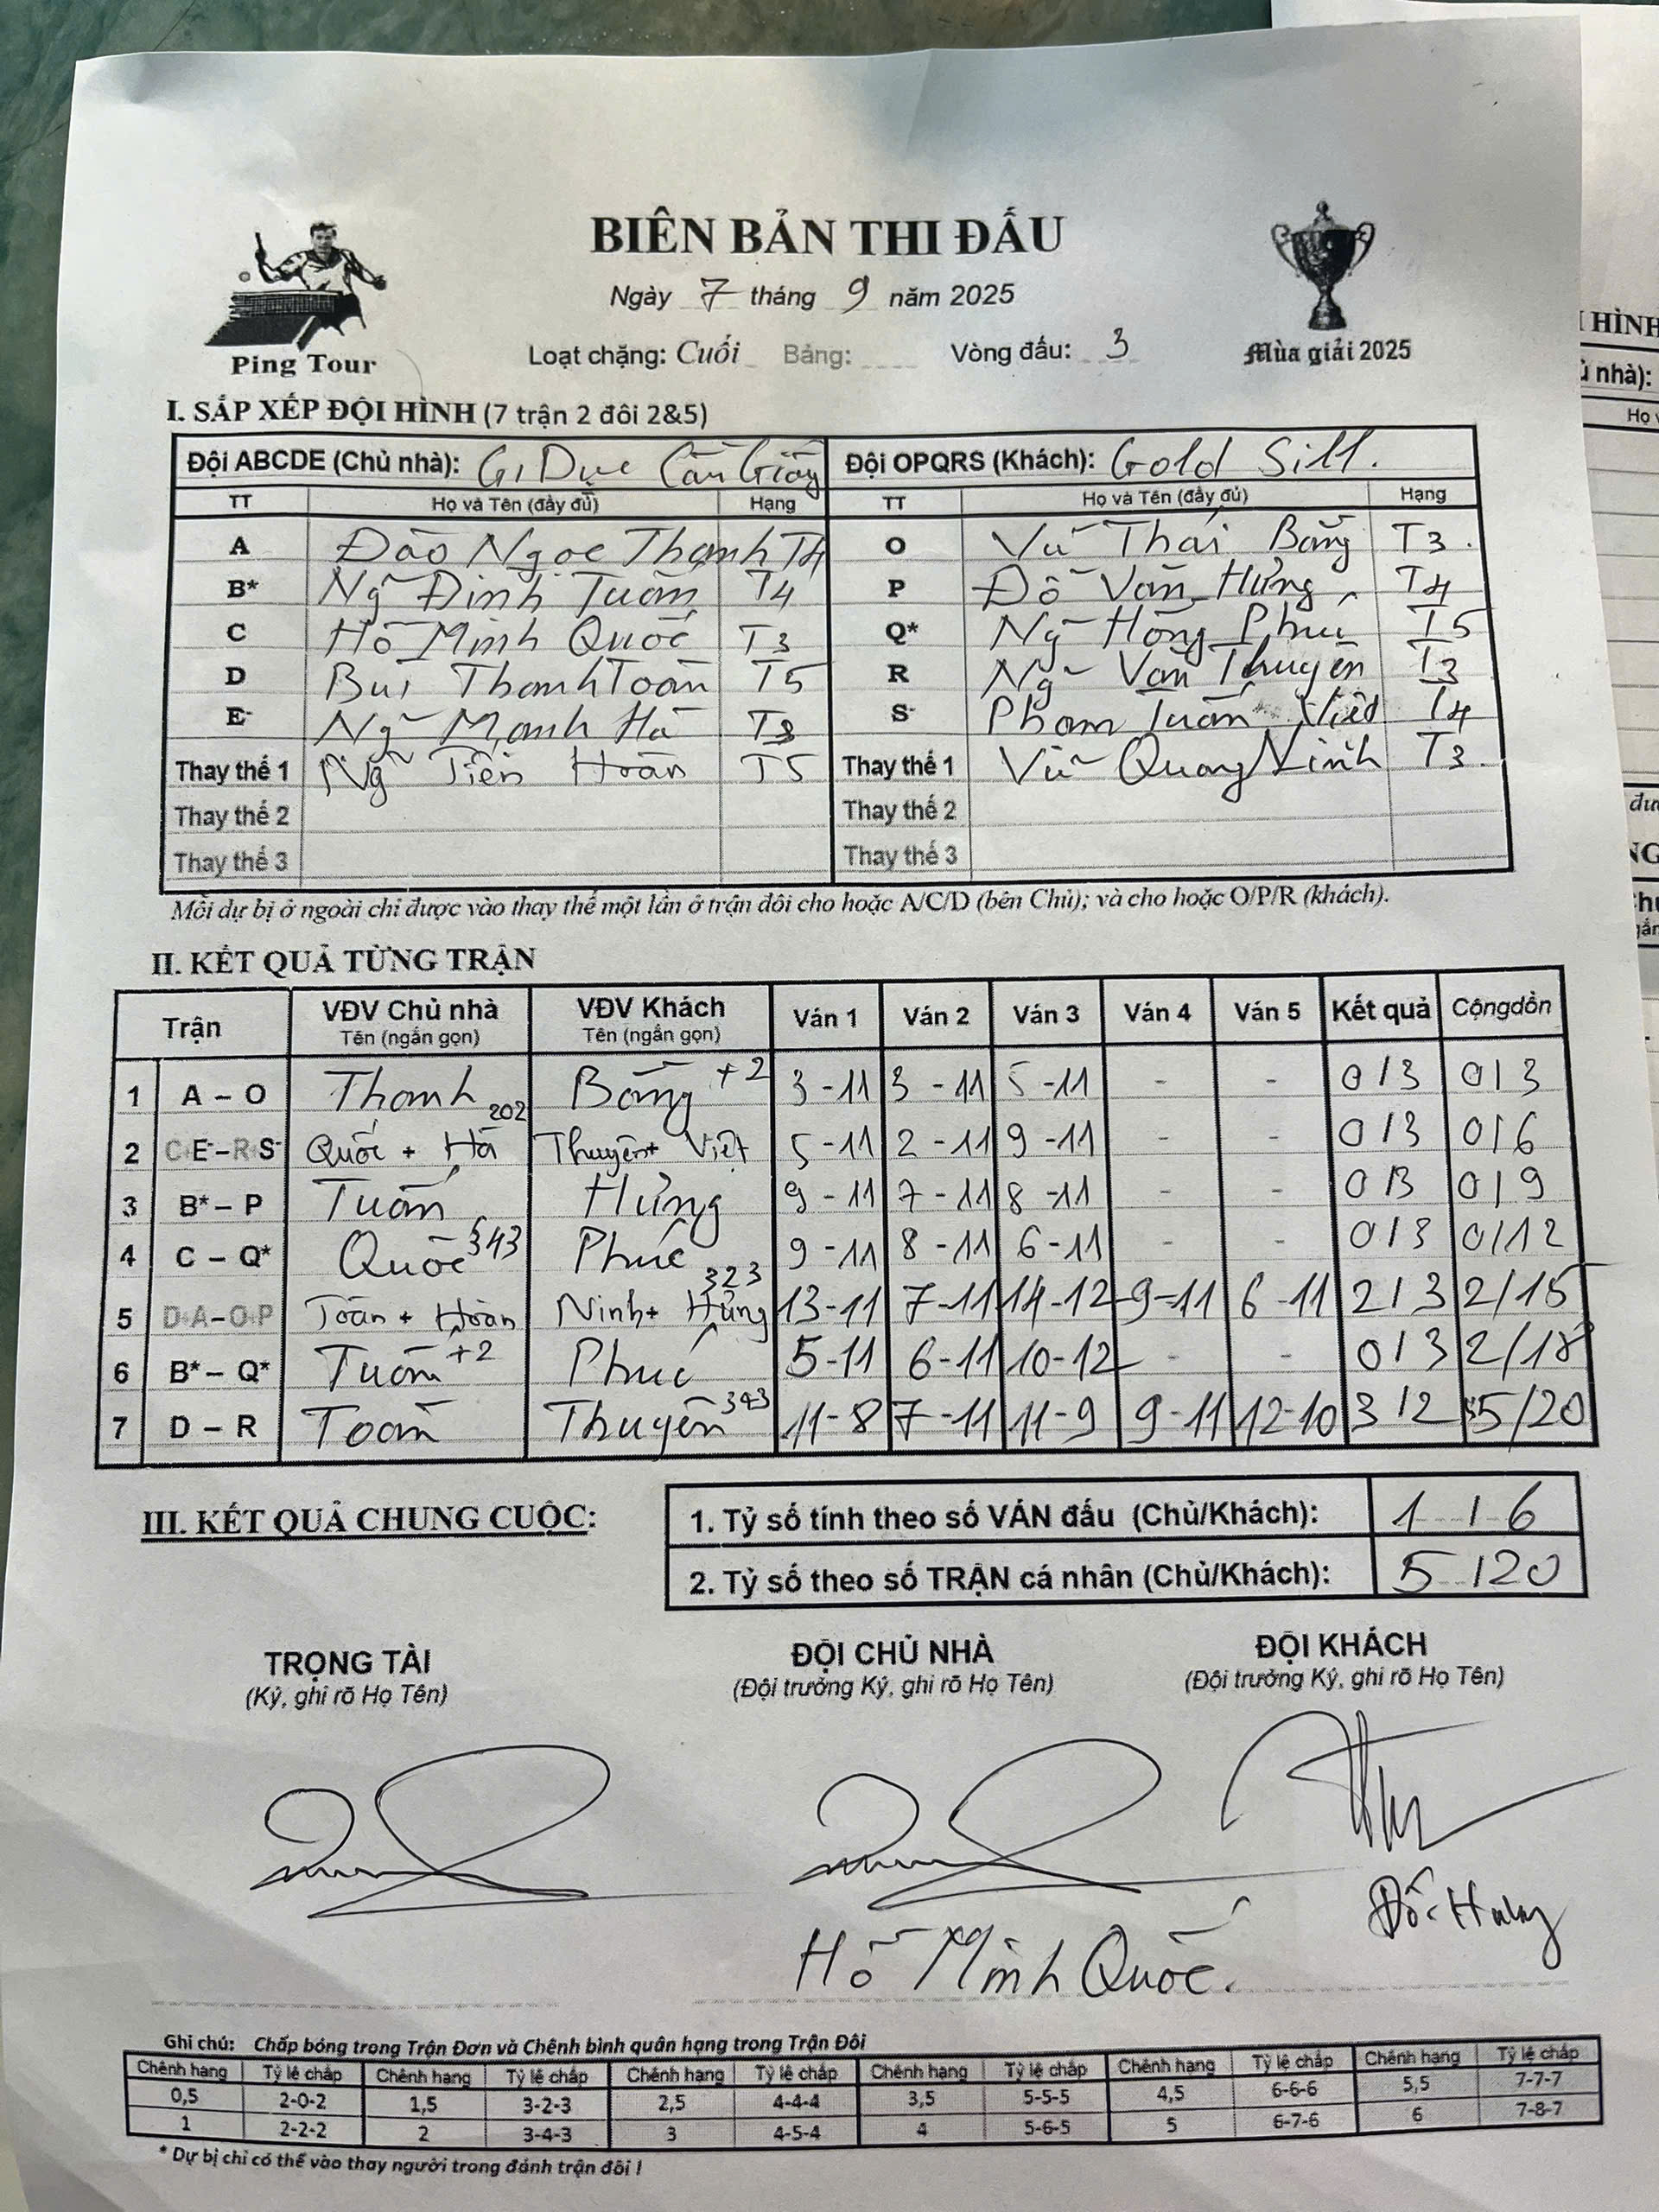 BIÊN BẢN THI ĐẤU
Ngày 7 tháng 9 năm 2025
Ping Tour
Loạt chặng: Cuối Bảng: Vòng đấu: 3
Mùa giải 2025
I. SẮP XẾP ĐỘI HÌNH (7 trận 2 đôi 2&5)
Đội ABCDE (Chủ nhà): G. Dục Cẩm Giàng Đội OPQRS (Khách): Gold Sill.
TT Họ và Tên (đầy đủ) Hạng TT Họ và Tên (đầy đủ) Hạng
A Đào Ngọc Thanh T4 O Vũ Thái Bằng T3.
B* Ng~ Đình Tuấn T4 P Đỗ Văn Hưng T4
C Hồ Minh Quốc T3 Q* Ng~ Hồng Phúc T5
D Bùi Thanh Toàn T5 R Ng~ Văn Thuyên T3
E- Ng~ Mạnh Hà T3 S- Phạm Tuấn Việt T4
Thay thế 1 Ng~ Tiến Hoàn T5 Thay thế 1 Vũ Quang Ninh T3.
Thay thế 2 Thay thế 2
Thay thế 3 Thay thế 3
Mỗi dự bị ở ngoài chỉ được vào thay thế một lần ở trận đôi cho hoặc A/C/D (bên Chủ); và cho hoặc O/P/R (khách).
II. KẾT QUẢ TỪNG TRẬN
Trận VĐV Chủ nhà VĐV Khách Ván 1 Ván 2 Ván 3 Ván 4 Ván 5 Kết quả Cộngdồn
Tên (ngắn gọn) Tên (ngắn gọn)
1 A – O Thanh Bằng +2 3-11 3-11 5-11 - - 0/3 0/3
2 C+E-–R+S- Quốc + Hà 202 Thuyên+ Việt 5-11 2-11 9-11 - - 0/3 0/6
3 B* – P Tuấn Hưng 9-11 7-11 8-11 - - 0/3 0/9
4 C – Q* Quốc 343 Phúc 9-11 8-11 6-11 - - 0/3 0/12
5 D+A–O+P Toàn + Hoàn Ninh+ Hưng 323 13-11 7-11 14-12 9-11 6-11 2/3 2/15
6 B* – Q* Tuấn +2 Phúc 5-11 6-11 10-12 - - 0/3 2/18
7 D – R Toàn Thuyên 343 11-8 7-11 11-9 9-11 12-10 3/2 5/20
III. KẾT QUẢ CHUNG CUỘC:
1. Tỷ số tính theo số VÁN đấu (Chủ/Khách): 1/6
2. Tỷ số theo số TRẬN cá nhân (Chủ/Khách): 5/20
TRỌNG TÀI ĐỘI CHỦ NHÀ ĐỘI KHÁCH
(Ký, ghi rõ Họ Tên) (Đội trưởng Ký, ghi rõ Họ Tên) (Đội trưởng Ký, ghi rõ Họ Tên)
Hồ Minh Quốc.
Ghi chú: Chấp bóng trong Trận Đơn và Chênh bình quân hạng trong Trận Đôi
Chênh hạng Tỷ lệ chấp Chênh hạng Tỷ lệ chấp Chênh hạng Tỷ lệ chấp Chênh hạng Tỷ lệ chấp Chênh hạng Tỷ lệ chấp Chênh hạng Tỷ lệ chấp
0,5 2-0-2 1,5 3-2-3 2,5 4-4-4 3,5 5-5-5 4,5 6-6-6 5,5 7-7-7
1 2-2-2 2 3-4-3 3 4-5-4 4 5-6-5 5 6-7-6 6 7-8-7
* Dự bị chỉ có thể vào thay người trong đánh trận đôi !